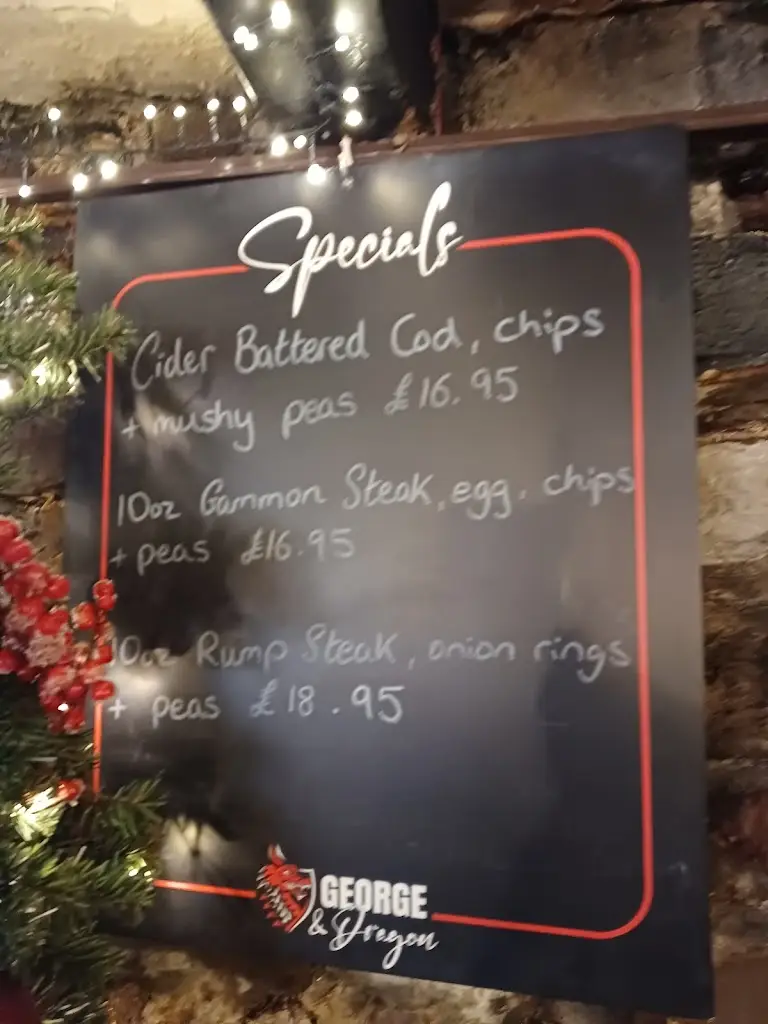 Specials
Cider Battered Cod, chips
+ mushy peas £16.95
10oz Gammon Steak, egg, chips
+ peas £16.95
10oz Rump Steak, onion rings
+ peas £18.95
GEORGE
& Dragon